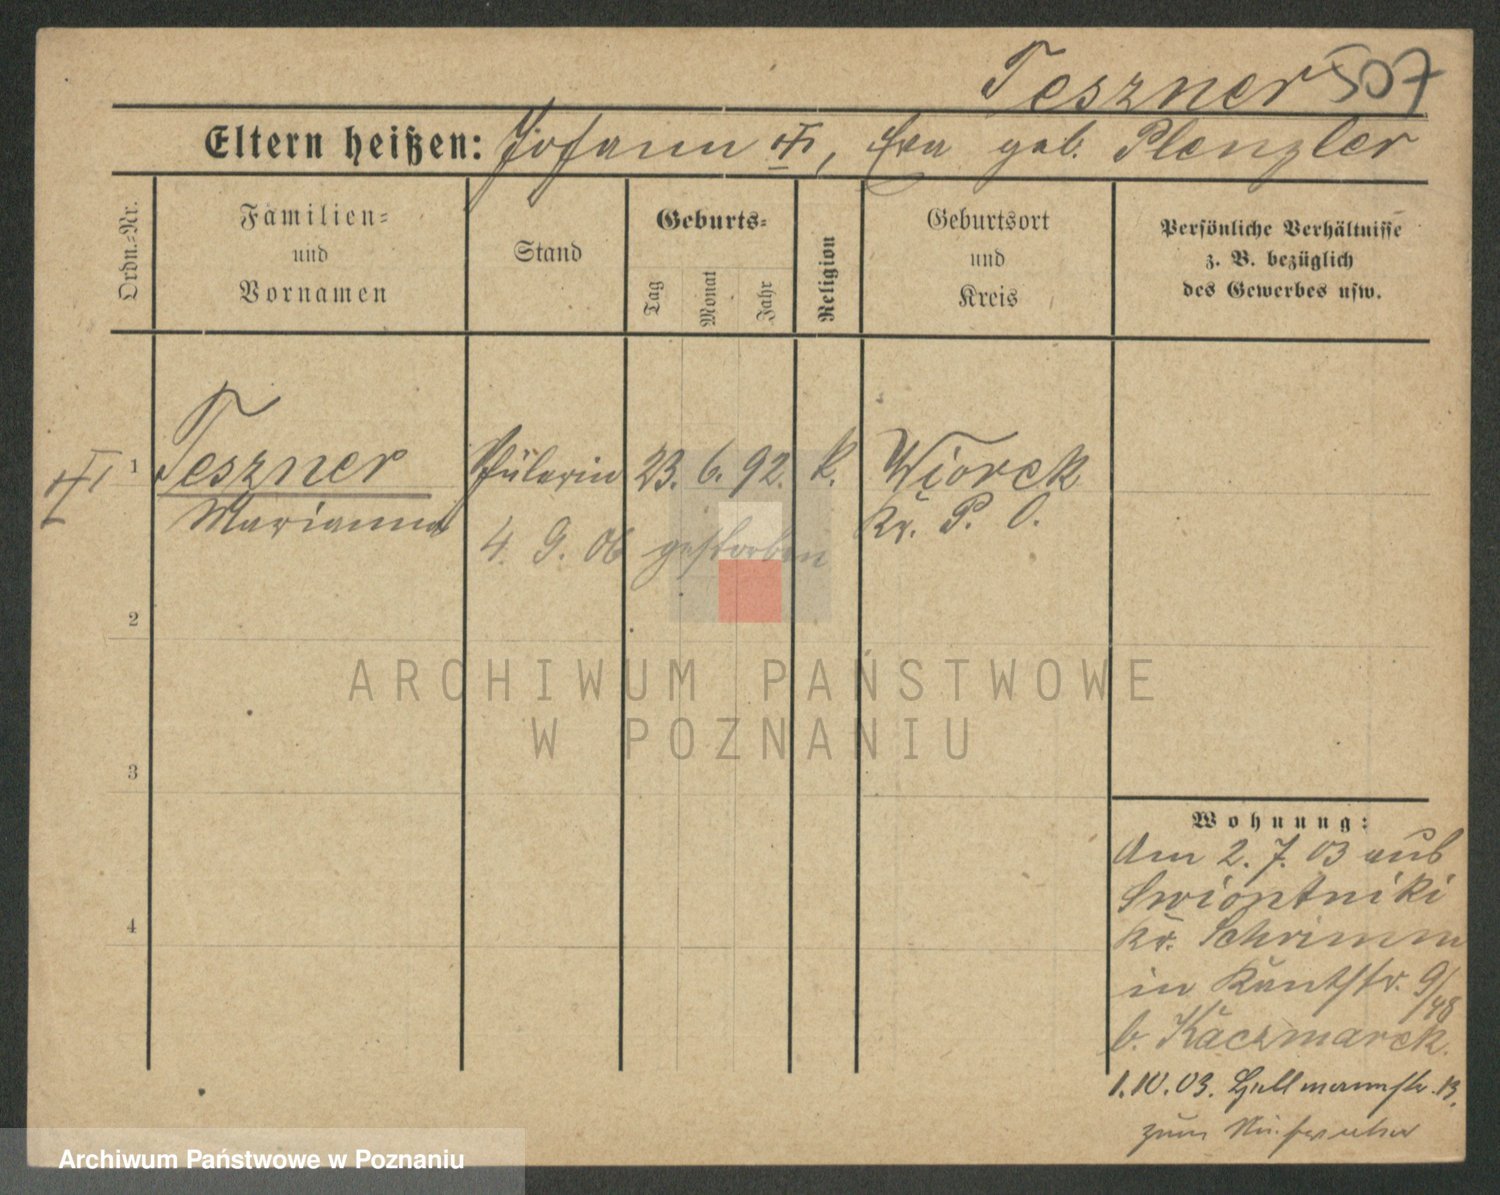 Teszner 507
Eltern heißen: Johann , Eva geb. Plenzler
Ordn.=Nr.
Familien=
und
Vornamen
Stand
Geburts=
Tag
Monat
Jahr
Religion
Geburtsort
und
Kreis
Persönliche Verhältnisse
z. B. bezüglich
des Gewerbes usw.
1 Teszner Schülerin 23. 6. 92. k. Wiorek
Marianna Kr. P. O.
4. 9. 06 gestorben
2
3
4
Wohnung:
Am 2. 7. 03 aus
Swiontniki
Kr. Schrimm
in Kantstr. 9/
/48
b. Kaczmarek.
1. 10. 03. Hellmannstr. 13.
zum
ARCHIWUM PAŃSTWOWE
W POZNANIU
Archiwum Państwowe w Poznaniu